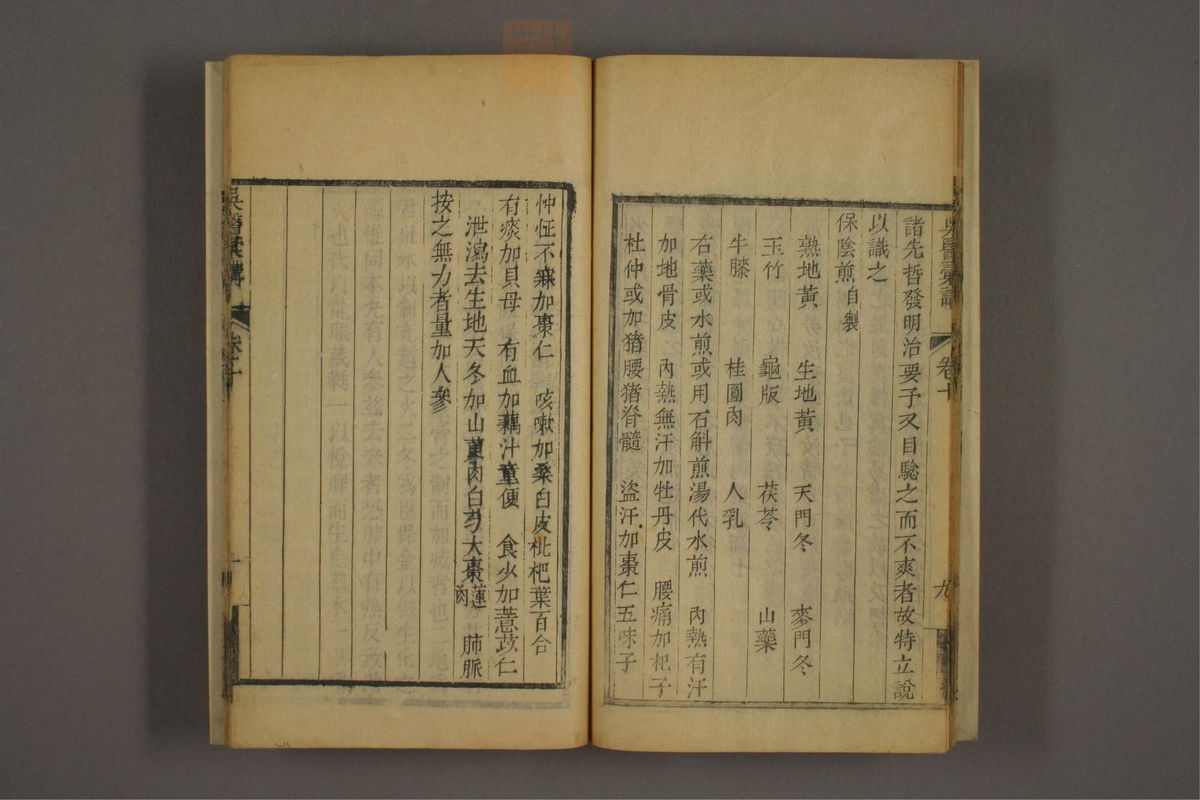 吳醫彙講 卷十 九
諸先哲發明治要予又目騐之而不爽者故特立說
以識之
保陰煎自製
熟地黃 生地黃 天門冬 麥門冬
玉竹 龜版 茯苓 山藥
牛膝 桂圓肉 人乳
右藥或水煎或用石斛煎湯代水煎 內熱有汗
加地骨皮 內熱無汗加牡丹皮 腰痛加杞子
杜仲或加猪腰猪脊髓 盜汗加棗仁五味子
怔忡不寐加棗仁 咳嗽加桑白皮枇杷葉百合
有痰加貝母 有血加藕汁童便 食少加薏苡仁
泄瀉去生地天冬加山萸肉白芍大棗蓮肉 肺脈
按之無力者量加人參
吳醫彙講 卷十